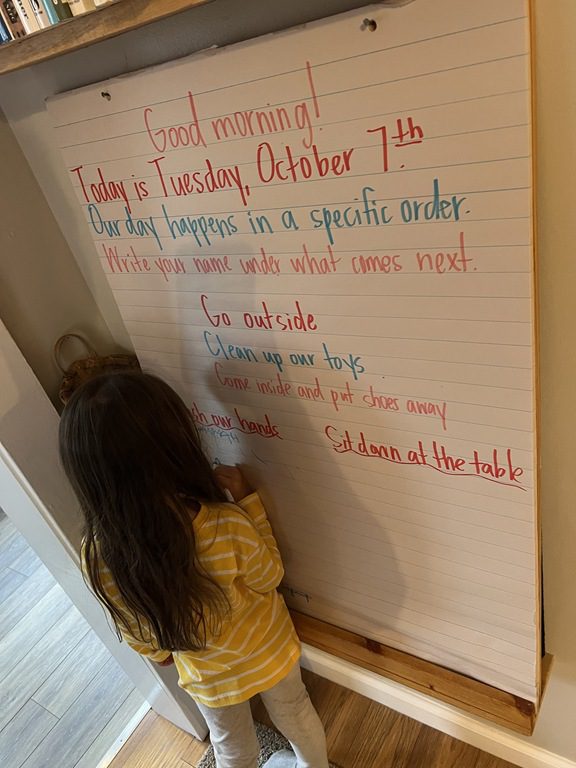 Good morning!
Today is Tuesday, October 7th.
Our day happens in a specific order.
Write your name under what comes next.
Go outside
Clean up our toys
Come inside and put shoes away
our hands
Sit down at the table